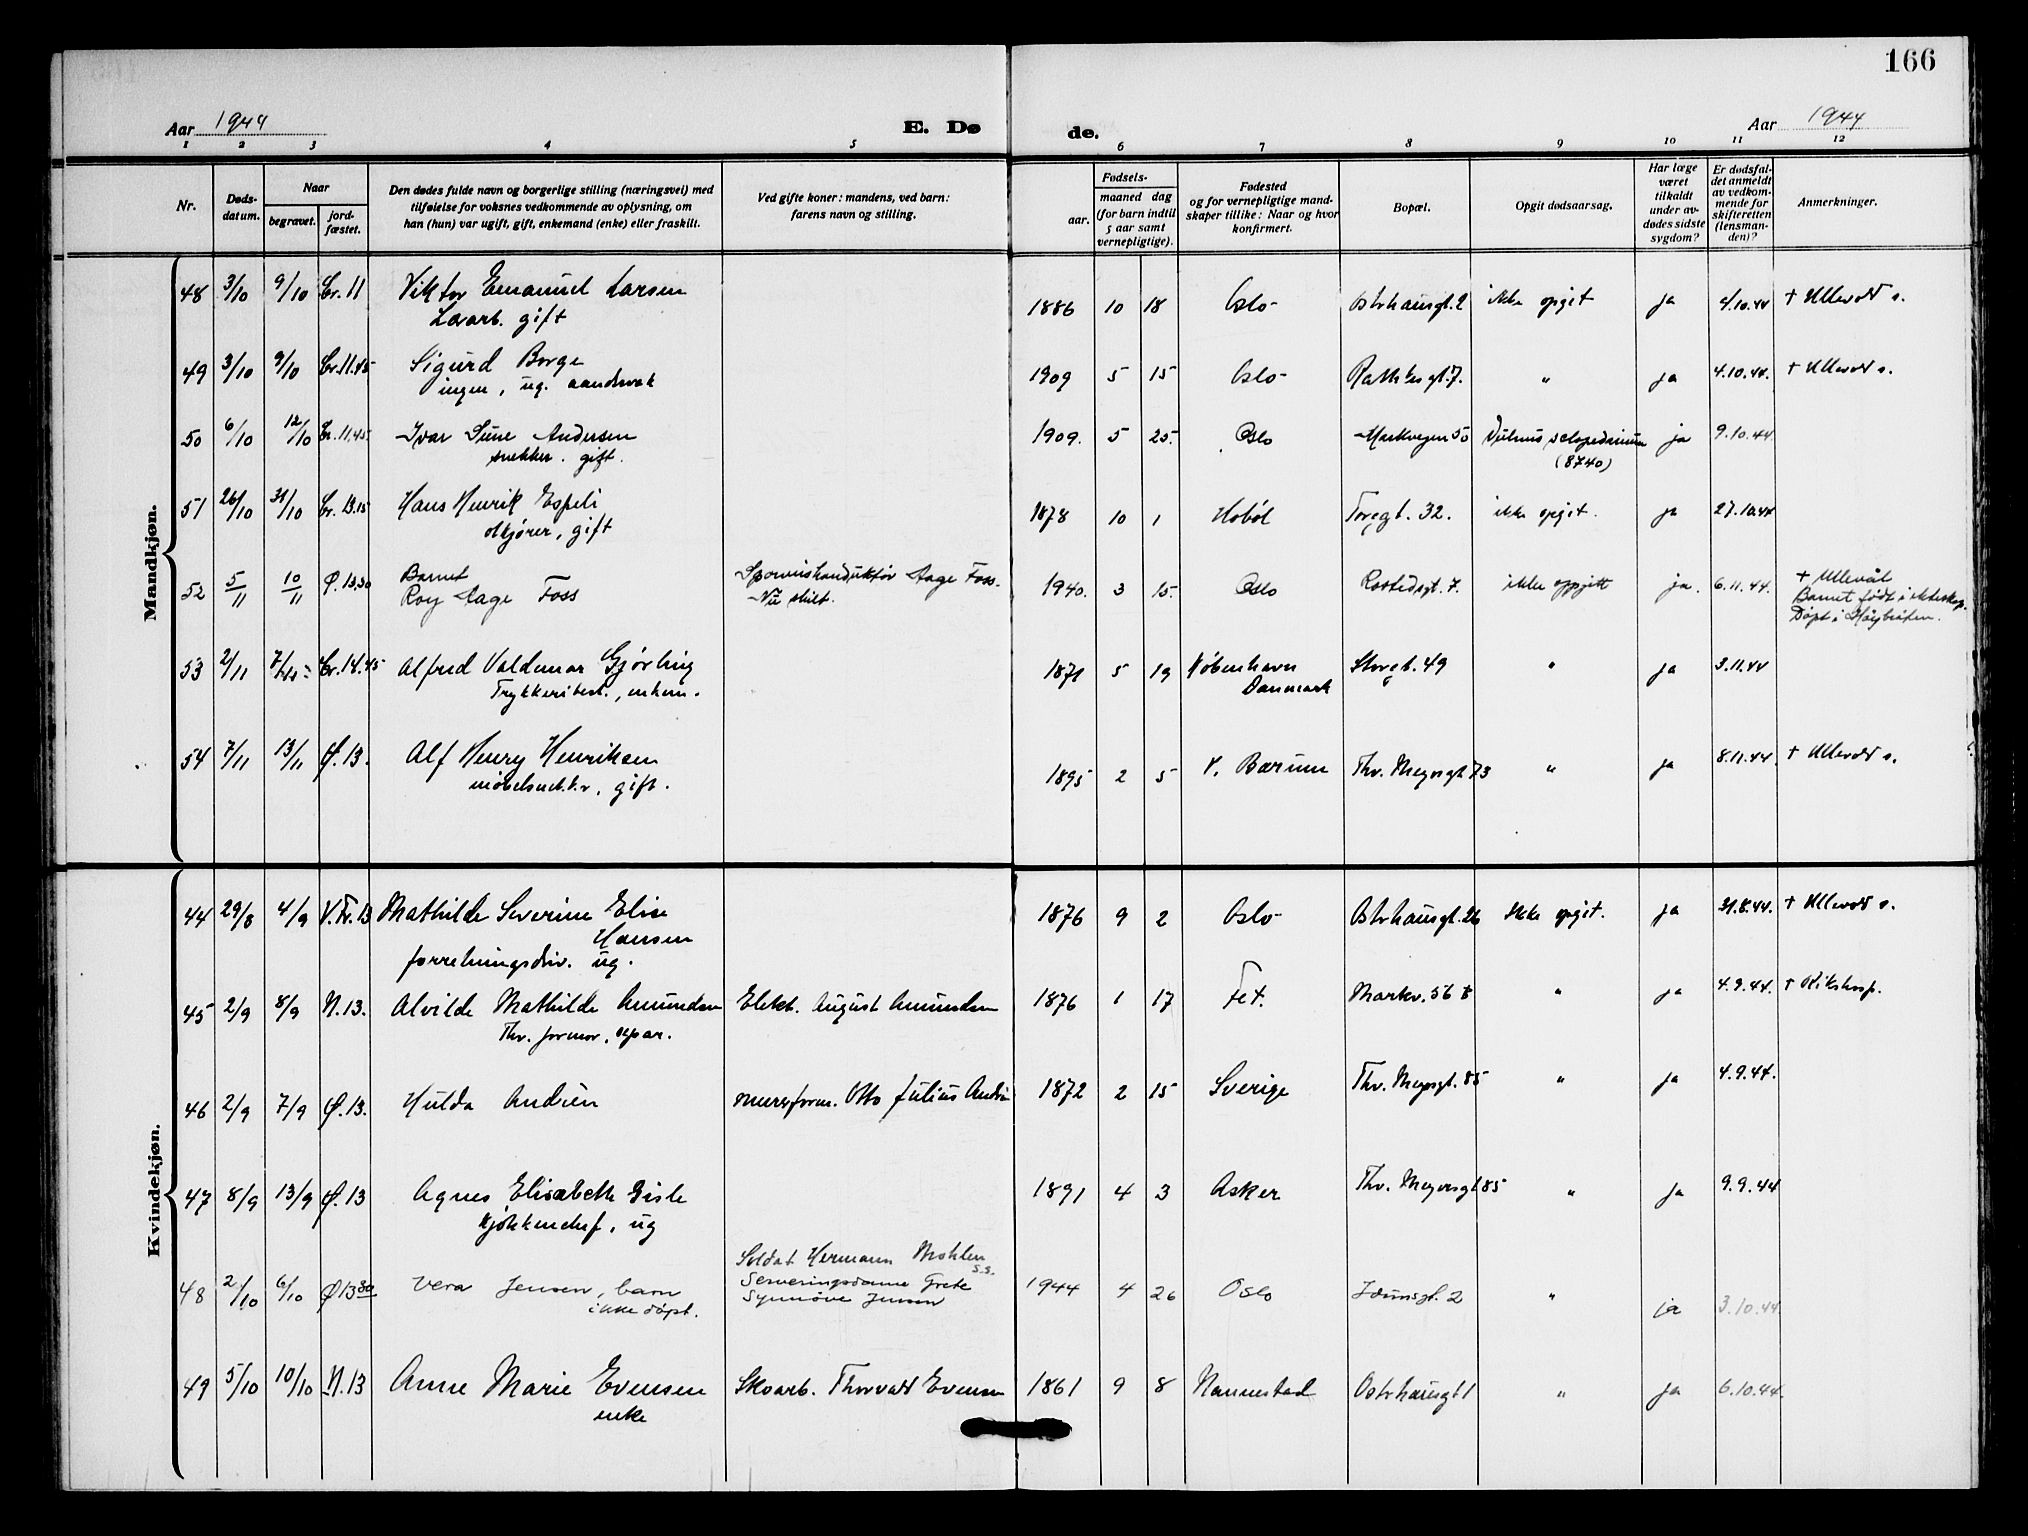 166
Aar 1944 E. Dø de. Aar 1944
1 2 3 4 5 6 7 8 9 10 11 12
Nr. Døds-datum. Naar begravet. jord-fæstet. Den dødes fulde navn og borgerlige stilling (næringsvei) med tilføielse for voksnes vedkommende av oplysning, om han (hun) var ugift, gift, enkemand (enke) eller fraskilt. Ved gifte koner: mandens, ved barn: farens navn og stilling. Fødsels- aar. maaned dag (for barn indtil 5 aar samt vernepligtige). Fødested og for vernepligtige mand-skaper tillike: Naar og hvor konfirmert. Bopæl. Opgit dødsaarsag. Har læge været tilkaldt under av-dødes sidste sygdom? Er dødsfal-det anmeldt av vedkom-mende for skifteretten (lensman-den)? Anmerkninger.
Mandkjøn.
48 3/10 9/10 Cr. 11 Viktor Emanuel Larsen 1886 10 18 Oslo Østerhausgt. 2 ikke opgit ja 4/10.44 + Ullevål s.
gift
49 3/10 9/10 Cr. 11.45 Sigurd Borge 1909 5 15 Oslo Rathkesgt. 7. " ja 4.10.44. + Ullevål s.
ingen, ug. aandsvak
50 6/10 12/10 Cr. 11.45. Ivar Sune Andersen 1909. 5 25. Oslo Markvegen 50 Vulnus sclopedarium ja 9.10.44.
snekker. gift. (8740)
51 26/10 31/10 Cr. 13.15 Hans Henrik Espeli 1878 10 1 Hobøl Torvgt. 32. ikke opgit. ja 27.10.44
ølkjører, gift
52 5/11 10/11 Ø. 13.30 Barnet Sporveiskonduktør Aage Foss. 1940. 3 15. Oslo Rostedsgt. 7. ikke oppgitt ja. 6.11.44. + Ullevål
Roy Aage Foss Nu skilt. Barnet født i ekteskap.
Døpt i Høybråten.
53 2/11 7/11 Cr. 14.45 Alfred Valdemar Gjørling 1871 5 19 København Storgt. 49 " ja 3.11.44
Trykkeribest., enkem. Danmark
54 7/11 13/11 Ø. 13. Alf Henry Henriksen 1895 2 5 V. Bærum Thv. Meyersgt 73 " ja 8.11.44. + Ullevål s.
møbelsnekker, gift.
Kvindekjøn.
44 29/8 4/9 V.Fr. 13 Mathilde Severine Elise 1876 9 2 Oslo Østerhausgt. 26 Ikke opgit. ja 31.8.44. + Ullevål s.
Hansen
forretningsdriv. ug.
45 2/9 8/9 N. 13. Alvilde Mathilde Amundsen Elekt. August Amundsen 1876 1 17 Fet. Markv. 56 " ja 4.9.44. + Rikshosp.
Thv. formor, separ.
46 2/9 7/9 Ø. 13. Hulda Andrén murerform. Otto Julius Andrén 1872 2 15 Sverige Thv. Meyersgt. 85 " ja 4.9.44.
47 8/9 13/9 Ø. 13 Agnes Elisabeth Gisle 1891 4 3 Asker Thv. Meyersgt 85 " ja 9.9.44
kjøkkenchef, ug
Soldat Hermann Mohlen
S.S.
48 2/10 6/10 Ø 13 30 Vera Jensen, barn Serveringsdame Grete 1944 4 26 Oslo Idunsgt. 2 " ja 3.10.44.
ikke døpt. Synnøve Jensen
49 5/10 10/10 N. 13 Anne Marie Evensen Skoarb. Thorvald Evensen 1861 9 8 Nannestad Østerhausgt 1 " ja 6.10.44.
enke